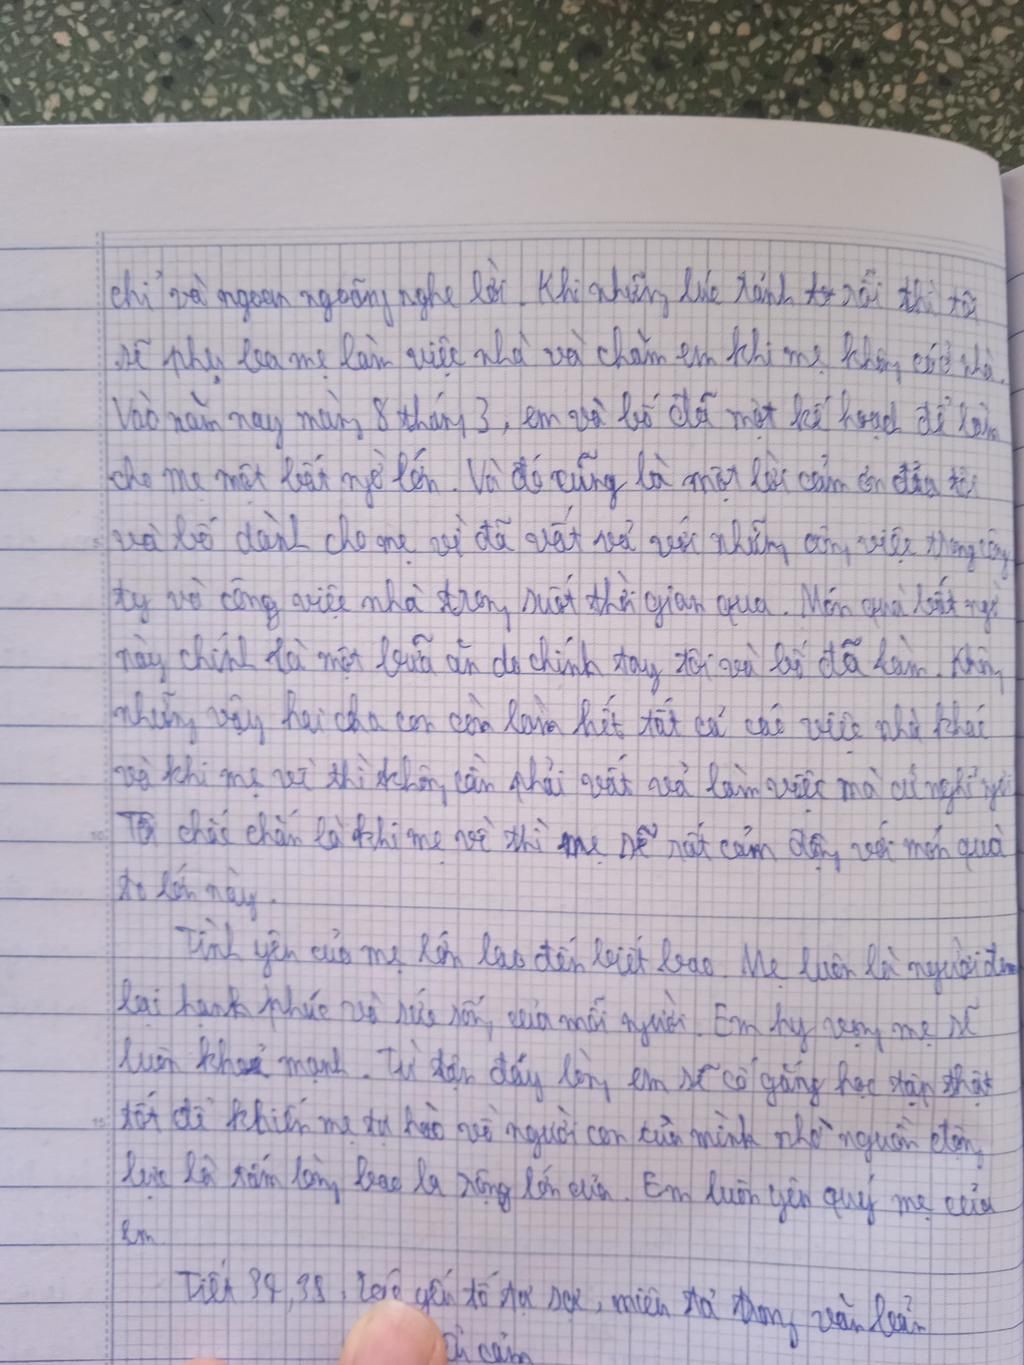 chỉ và ngoan ngoãng nghe lời. Khi những lúc rảnh rồi thì tôi
sẽ phụ ba mẹ làm việc nhà và chăm em khi mẹ không có ở nhà.
Vào năm nay mùng 8 tháng 3, em và bố đã một kế hoạch để làm
cho mẹ một bất ngờ lớn. Và đó cũng là một lời cảm ơn của tôi
và bố dành cho mẹ vì đã vất vả với những công việc trong công
ty về công việc nhà trong suốt thời gian qua. Món quà bất ngờ
này chính là một bữa ăn do chính tay tôi và bố đã làm. Không
những vậy hai cha con còn làm hết tất cả các việc nhà khác
và khi mẹ về thì không cần phải vất vả làm việc mà cứ nghỉ ngơi
Tôi chắc chắn là khi mẹ về thì mẹ sẽ rất cảm động với món quà
to lớn này.
Tình yêu của mẹ lớn lao đến biết bao. Mẹ luôn là người đem
lại hạnh phúc và sức sống của mỗi người. Em hy vọng mẹ sẽ
luôn khoẻ mạnh. Từ tận đáy lòng em sẽ cố gắng học tập thật
tốt để khiến mẹ tự hào về người con của mình nhờ nguồn động
lực là tấm lòng bao la rộng lớn của. Em luôn yêu quý mẹ của
em
Tiết 34, 35, yếu tố tự sự, miêu tả trong văn bản
cảm